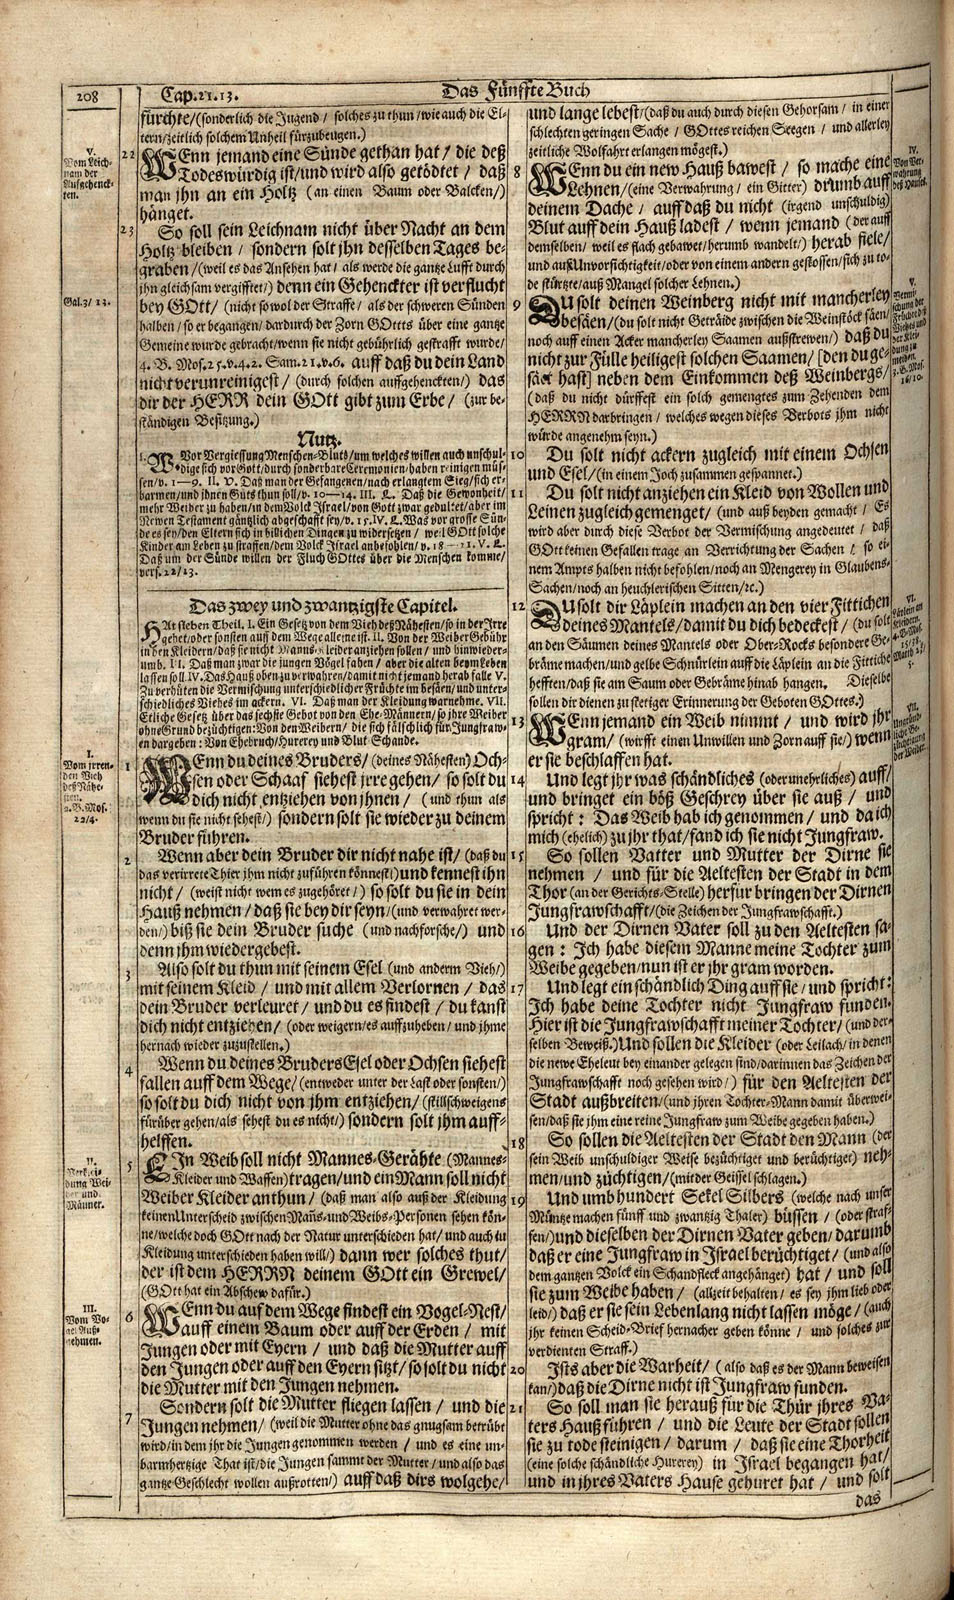 208
Cap. 21. 13.
Das Fünffte Buch
fürchte/ (sonderlich die Jugend / solches zu thun/wie auch die El-
tern/zeitlich solchem Unheil fürzubeugen.)
V.
Vom Leich-
nam der
Auffgehenck-
ten.
22 WEnn jemand eine Sünde gethan hat/ die deß
Todes würdig ist/und wird also getödtet / daß
man jhn an ein Holtz (an einen Baum oder Balcken/)
hänget.
23 So soll sein Leichnam nicht über Nacht an dem
Holtz bleiben / sondern solt jhn desselben Tages be-
graben /(weil es das Ansehen hat / als werde die gantze Lufft durch
Gal. 3/ 13.
jhn gleichsam vergifftet/) denn ein Gehenckter ist verflucht
bey GOtt/ (nicht so wol der Straffe/ als der schweren Sünden
halben/ so er begangen/dardurch der Zorn GOttes über eine gantze
Gemeine wurde gebracht/wenn sie nicht gebührlich gestrafft wurde/
4. B. Mos. 25. v. 4. 2. Sam. 21. v. 6. auff daß du dein Land
nicht verunreinigest/ (durch solchen auffgehenckten/) das
dir der HERR dein GOtt gibt zum Erbe/ (zur be-
ständigen Besitzung.)
Nutz.
I. W. Vor Vergiessung Menschen-Bluts/um welches willen auch unschul-
dige sich vor Gott/durch sonderbare Ceremonien/haben reinigen müs-
sen/ v. 1—9. II. V. Daß man der Gefangenen/nach erlangtem Sieg/sich er-
barmen/und ihnen Guts thun soll/ v. 10—14. III. L. Daß die Gewonheit/
mehr Weiber zu haben/in dem Volck Israel/von Gott zwar gedultet/aber im
Newen Testament gäntzlich abgeschafft sey/ v. 15. IV. L. Was vor grosse Sün-
de es sey/den Eltern sich in billichen Dingen zu widersetzen/ weil GOtt solche
Kinder am Leben zu straffen/dem Volck Israel anbefohlen/ v. 18—21. V. L.
Daß um der Sünde willen der Fluch GOttes über die Menschen komme/
vers. 22/23.
Das zwey und zwantzigste Capitel.
HAt sieben Theil. I. Ein Gesetz von dem Vieh deß Nähesten/ so in der Irre
gehet/oder sonsten auff dem Wege alleine ist. II. Von der Weiber Gebühr
in den Kleidern/ daß sie nicht Manns-Kleider anziehen sollen / und hinwieder-
umb. III. Daß man zwar die jungen Vögel fahen / aber die alten beym Leben
lassen soll. IV. Das Hauß oben zu verwahren/damit nicht jemand herab falle. V.
Zu verhüten die Vermischung unterschiedlicher Früchte im besäen/und unter-
schiedliches Viehes im ackern. VI. Daß man der Kleidung warnehme. VII.
Etliche Gesetz über das sechste Gebot von den Ehe-Männern/ so jhre Weiber
ohne Grund bezüchtigen: Von den Weibern/ die sich fälschlich für Jungfraw-
en dargeben: Von Ehebruch/Hurerey und Blut-Schande.
I.
Vom jrren-
den Vieh
deß Nähe-
sten.
2. B. Mos.
23/4.
1 WEnn du deines Bruders/ (deines Nähesten) Och-
sen oder Schaaf siehest jrre gehen/ so solt du
dich nicht entziehen von jhnen/ (und thun als
wenn du sie nicht sehest/) sondern solt sie wieder zu deinem
Bruder führen.
2 Wenn aber dein Bruder dir nicht nahe ist/ (daß du
das verirrete Thier jhm nicht zuführen könnest/) und kennest ihn
nicht/ (weist nicht wem es zugehöret/) so solt du sie in dein
Hauß nehmen/ daß sie bey dir seyn/ (und verwahret wer-
den/) biß sie dein Bruder suche (und nachforsche/) und
denn jhm wiedergebest.
3 Also solt du thun mit seinem Esel (und anderm Vieh/)
mit seinem Kleid / und mit allem Verlornen / das
dein Bruder verleuret/ und du es findest/ du kanst
dich nicht entziehen/ (oder weigern/es auffzuheben/und jhme
hernach wieder zuzustellen.)
4 Wenn du deines Bruders Esel oder Ochsen siehest
fallen auff dem Wege/ (entweder unter der Last oder sonsten/)
so solt du dich nicht von jhm entziehen/ (stillschweigens
fürüber gehen/als sehest du es nicht/) sondern solt jhm auff-
helffen.
II.
Verkeidung Wei-
ber und
Männer.
5 EIn Weib soll nicht Mannes-Gerähte (Mannes-
Kleider und Waffen) tragen/und ein Mann soll nicht
Weiber Kleider anthun/ (daß man also auß der Kleidung
keinen Unterscheid zwischen Mañs-und Weibs-Personen sehen kön-
ne/welche doch GOtt nach der Natur unterschieden hat/ und auch in
Kleidung unterschieden haben will/) dann wer solches thut/
der ist dem HERRN deinem GOtt ein Grewel/
(GOtt hat ein Abschew dafür.)
III.
Vom Vo-
gel Auß-
nehmen.
6 WEnn du auf dem Wege findest ein Vogel-Nest/
auff einem Baum oder auff der Erden / mit
Jungen oder mit Eyern / und daß die Mutter auff
den Jungen oder auff den Eyern sitzt/ so solt du nicht
die Mutter mit den Jungen nehmen.
7 Sondern solt die Mutter fliegen lassen / und die
Jungen nehmen/ (weil die Mutter ohne das gnugsam betrübt
wird/in dem jhr die Jungen genommen werden / und es eine un-
barmhertzige That ist/die Jungen sammt der Mutter/ und also das
gantze Geschlecht wollen außrotten/) auff daß dirs wolgehe/
und lange lebest/(daß du auch durch diesen Gehorsam/ in einer
schlechten geringen Sache / GOttes reichen Seegen / und allerley
zeitliche Wolfahrt erlangen mögest.)
IV.
Von Ver-
wahrung
des Hauses.
8 WEnn du ein new Hauß bawest / so mache eine
Lehnen/ (eine Verwahrung / ein Gitter) drumb auff
deinem Dache / auff daß du nicht (irgend unschuldig)
Blut auff dein Hauß ladest / wenn jemand (der auff
demselben/ weil es flach gebawet/herumb wandelt/) herab fiele/
und auß Unvorsichtigkeit/oder von einem andern gestossen/sich zu to-
de stürtzte/auß Mangel solcher Lehnen.)
V.
9 DU solt deinen Weinberg nicht mit mancherley
besäen/ (du solt nicht Getraide zwischen die Weinstöck säen/
noch auff einen Acker mancherley Saamen außstrewen/) daß du
nicht zur Fülle heiligest solchen Saamen/ [den du ge-
säet hast] neben dem Einkommen deß Weinbergs/
(daß du nicht dürffest ein solch gemengtes zum Zehenden dem
HERRN darbringen / welches wegen dieses Verbots jhm nicht
würde angenehm seyn.)
10 Du solt nicht ackern zugleich mit einem Ochsen
und Esel/ (in einem Joch zusammen gespannet.)
11 Du solt nicht anziehen ein Kleid von Wollen und
Leinen zugleich gemenget/ (und auß beyden gemacht / Es
wird aber durch diese Verbot der Vermischung angedeutet / daß
GOtt keinen Gefallen trage an Verrichtung der Sachen / so ei-
nem Ampts halben nicht befohlen/noch an Mengerey in Glaubens-
Sachen/noch an heuchlerischen Sitten/ꝛc.)
VI.
12 DU solt dir Läplein machen an den vier Fittichen
deines Mantels/damit du dich bedeckest/ (du solt
an den Säumen deines Mantels oder Ober-Rocks besondere Ge-
bräme machen/und gelbe Schnürlein auff die Läplein an die Fittiche
hefften/daß sie am Saum oder Gebräme hinab hangen. Dieselbe
sollen dir dienen zu stetiger Erinnerung der Geboten GOttes.)
VII.
13 WEnn jemand ein Weib nimmt / und wird jhr
gram/ (wirfft einen Unwillen und Zorn auff sie/) wenn
er sie beschlaffen hat.
14 Und legt jhr was schändliches (oder unehrliches) auff/
und bringet ein böß Geschrey über sie auß / und
spricht: Das Weib hab ich genommen/ und da ich
mich (ehelich) zu jhr that/ fand ich sie nicht Jungfraw.
15 So sollen Vatter und Mutter der Dirne sie
nehmen / und für die Aeltesten der Stadt in dem
Thor (an der Gerichts-Stelle) herfür bringen der Dirnen
Jungfrawschafft/ (die Zeichen der Jungfrawschafft.)
16 Und der Dirnen Vater soll zu den Aeltesten sa-
gen: Ich habe diesem Manne meine Tochter zum
Weibe gegeben/nun ist er jhr gram worden.
17 Und legt ein schändlich Ding auff sie/ und spricht:
Ich habe deine Tochter nicht Jungfraw funden.
Hier ist die Jungfrawschafft meiner Tochter/ (und der-
selben Beweiß.) Und sollen die Kleider (oder Leilach/ in denen
die newe Eheleut bey einander gelegen sind/darinnen das Zeichen der
Jungfrawschafft noch gesehen wird/) für den Aeltesten der
Stadt außbreiten/ (und jhren Tochter-Mann damit überwei-
sen/daß sie jhm eine reine Jungfraw zum Weibe gegeben haben.)
18 So sollen die Aeltesten der Stadt den Mann (der
sein Weib unschuldiger Weise bezüchtiget und berüchtiget) neh-
men/und züchtigen/ (mit der Geissel schlagen.)
19 Und umb hundert Sekel Silbers (welche nach unser
Müntze machen fünff und zwantzig Thaler) büssen / (oder straf-
fen/) und dieselben der Dirnen Vater geben/ darumb
daß er eine Jungfraw in Israel berüchtiget/ (und also
dem gantzen Volck ein Schandfleck angehänget) hat/ und soll
sie zum Weibe haben/ (allzeit behalten/ es sey jhm lieb oder
leid/) daß er sie sein Lebenlang nicht lassen möge/ (auch
jhr keinen Scheid-Brief hernacher geben könne / und solches zur
verdienten Straff.)
20 Ists aber die Warheit/ (also daß es der Mann beweisen
kan/) daß die Dirne nicht ist Jungfraw funden.
21 So soll man sie herauß für die Thür jhres Va-
ters Hauß führen / und die Leute der Stadt sollen
sie zu tode steinigen/ darum/ daß sie eine Thorheit
(eine solche schändliche Hurerey) in Israel begangen hat/
und in jhres Vaters Hause gehuret hat / und solt
das